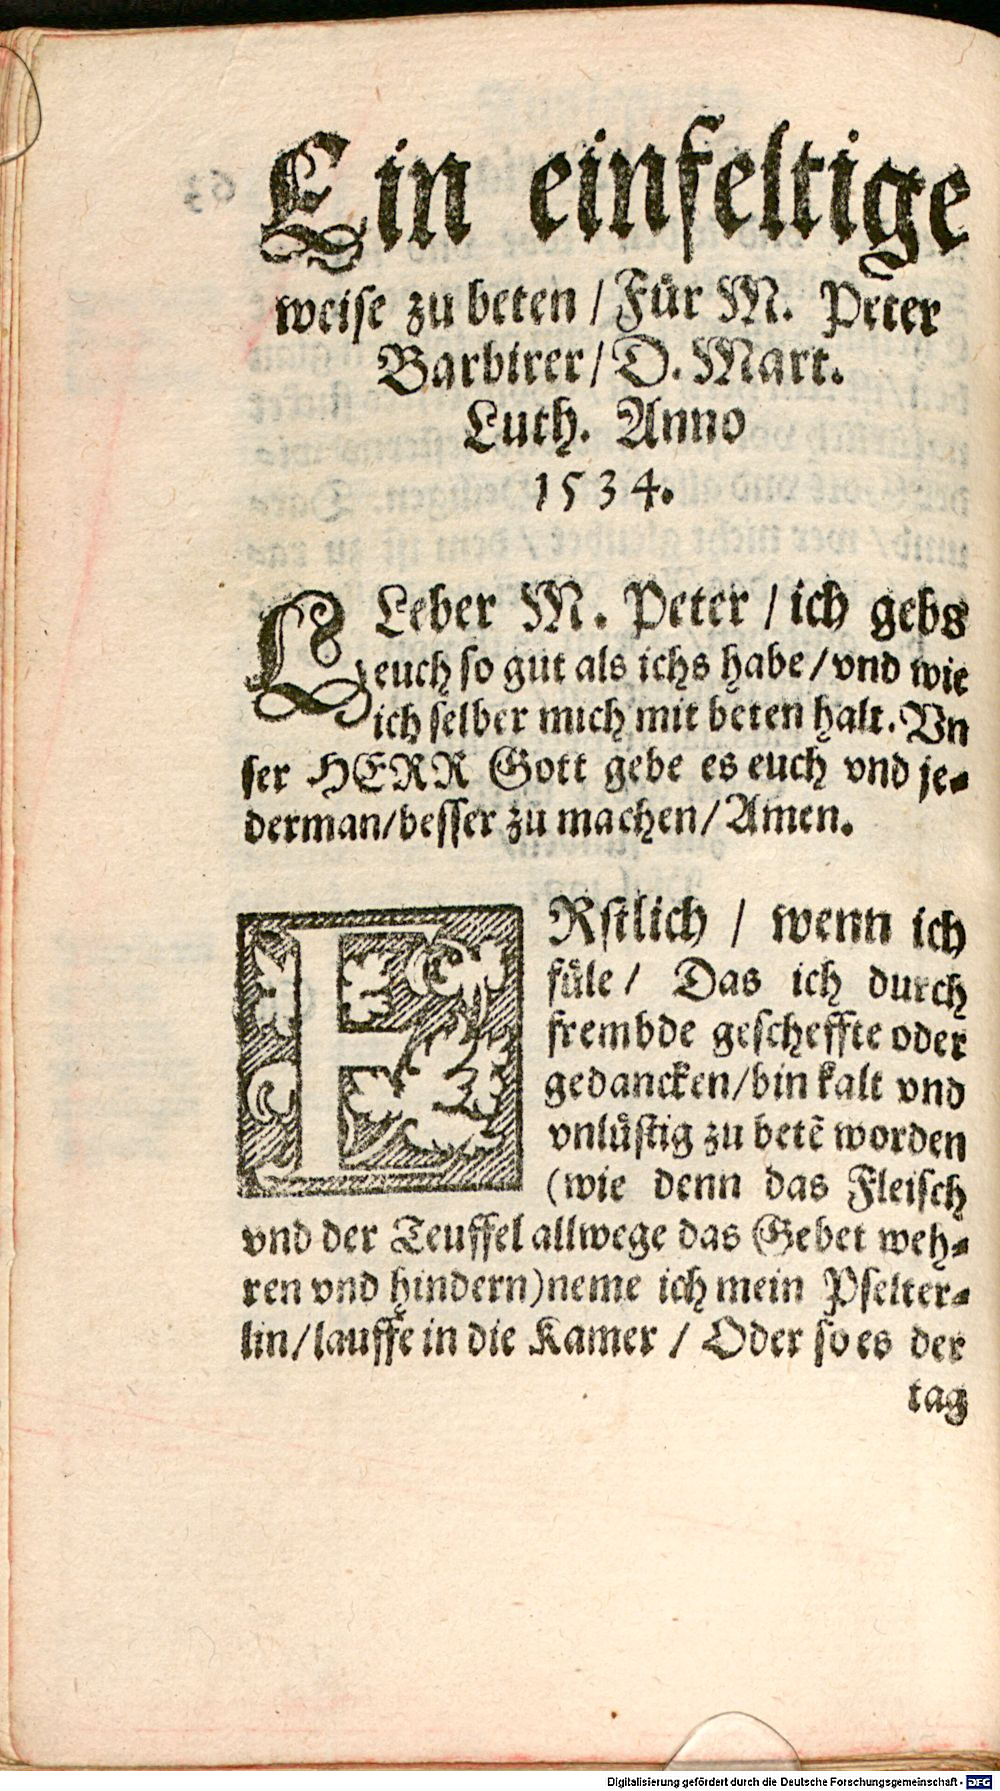 Ein einfeltige
weise zu beten / Für M. Peter
Barbirer / D. Mart.
Luth. Anno
1534.
LLeber M. Peter / ich gebs
euch so gut als ichs habe / vnd wie
ich selber mich mit beten halt. Vn
ser HERR Gott gebe es euch vnd je-
derman / besser zu machen / Amen.
ERstlich / wenn ich
füle / Das ich durch
frembde gescheffte oder
gedancken / bin kalt vnd
vnlüstig zu betē worden
(wie denn das Fleisch
vnd der Teuffel allwege das Gebet weh-
ren vnd hindern) neme ich mein Pselter-
lin / lauffe in die Kamer / Oder so es der
tag
Digitalisierung gefördert durch die Deutsche Forschungsgemeinschaft - DFG